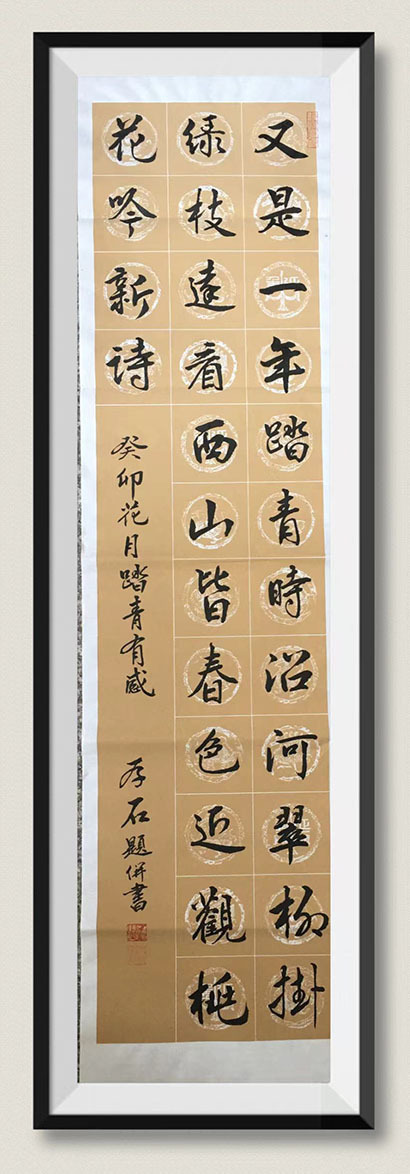 又是一年踏青時沿河翠柳掛
绿枝遠看西山皆春色近觀桃
花吟新诗
癸卯花月踏青有感
存石題併書